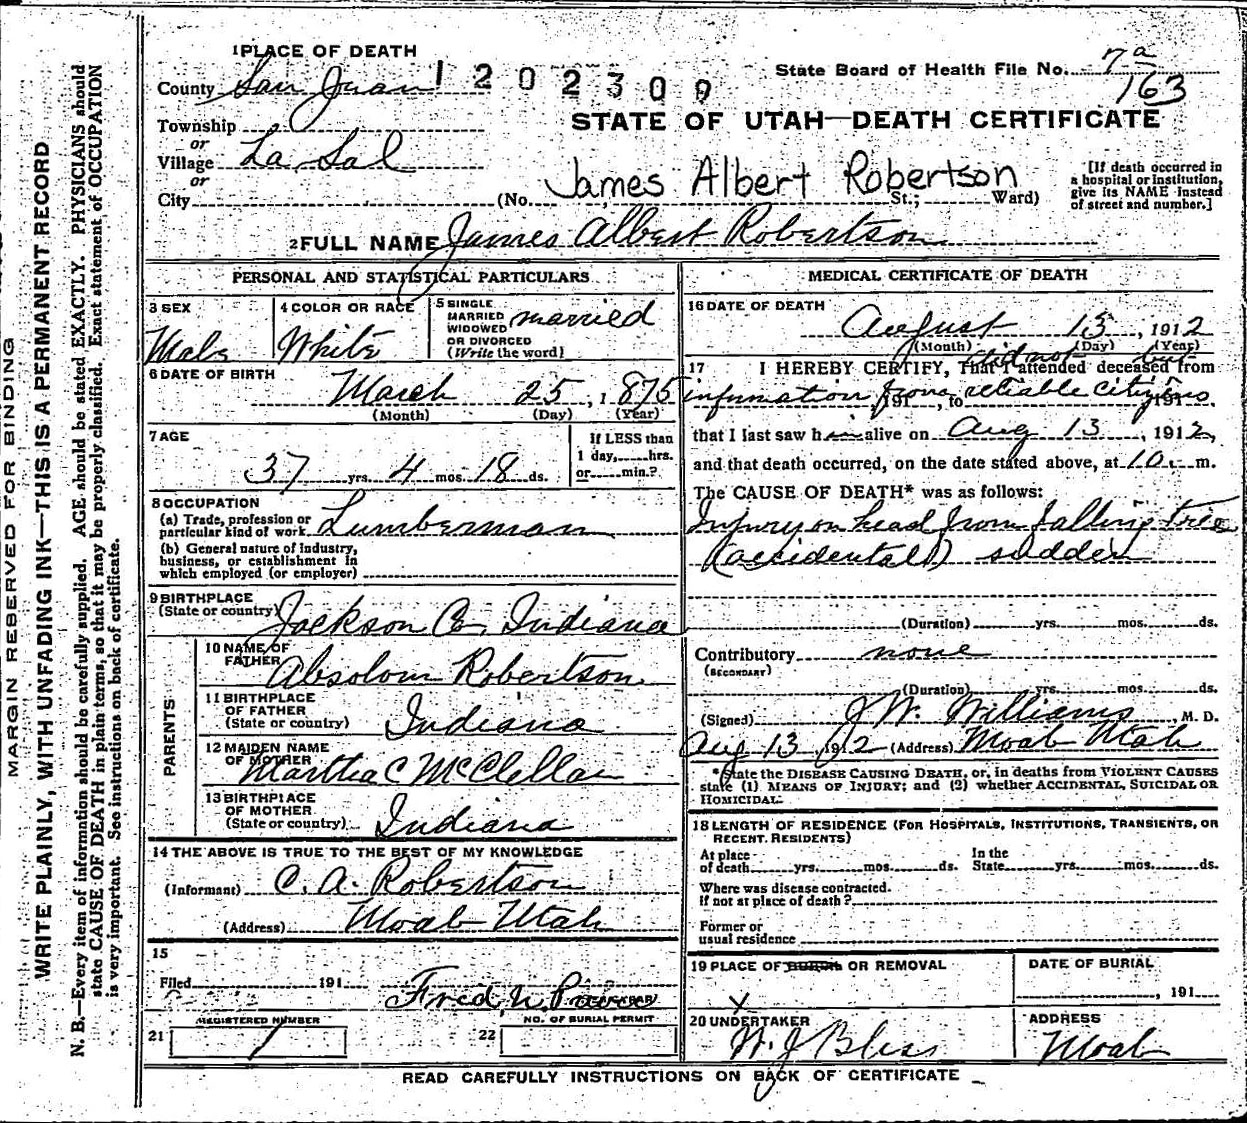 1 PLACE OF DEATH
County San Juan 1202309
State Board of Health File No. 7a
163
Township
or
Village La Sal
or
City
STATE OF UTAH—DEATH CERTIFICATE
(No. James Albert Robertson St.; Ward)
[If death occurred in
a hospital or institution,
give its NAME instead
of street and number.]
2 FULL NAME James Albert Robertson
PERSONAL AND STATISTICAL PARTICULARS
3 SEX
Male
4 COLOR OR RACE
White
5 SINGLE
MARRIED
WIDOWED
OR DIVORCED
(Write the word)
married
6 DATE OF BIRTH
March 25, 1875
(Month) (Day) (Year)
7 AGE
37 yrs. 4 mos. 18 ds.
If LESS than
1 day, hrs.
or min.?
8 OCCUPATION
(a) Trade, profession or
particular kind of work Lumberman
(b) General nature of industry,
business, or establishment in
which employed (or employer)
9 BIRTHPLACE
(State or country) Jackson Co, Indiana
PARENTS
10 NAME OF
FATHER Absolom Robertson
11 BIRTHPLACE
OF FATHER
(State or country) Indiana
12 MAIDEN NAME
OF MOTHER Martha C McClellan
13 BIRTHPLACE
OF MOTHER
(State or country) Indiana
14 THE ABOVE IS TRUE TO THE BEST OF MY KNOWLEDGE
(Informant) C. A. Robertson
(Address) Moab Utah
15
Filed 191 Fred N.
21 REGISTERED NUMBER
1
22 NO. OF BURIAL PERMIT
MEDICAL CERTIFICATE OF DEATH
16 DATE OF DEATH
August 13, 1912
(Month) (Day) (Year)
did not but
17 I HEREBY CERTIFY, That I attended deceased from
information from reliable citizens
191 , to 191
that I last saw h alive on Aug 13, 1912,
and that death occurred, on the date stated above, at 10 m.
The CAUSE OF DEATH* was as follows:
Injury on head from falling tree
(accidental) sudden
(Duration) yrs. mos. ds.
Contributory none
(SECONDARY)
(Duration) yrs. mos. ds.
(Signed) J W. Williams, M. D.
Aug 13, 1912 (Address) Moab Utah
*State the DISEASE CAUSING DEATH, or, in deaths from VIOLENT CAUSES
state (1) MEANS OF INJURY; and (2) whether ACCIDENTAL, SUICIDAL OR
HOMICIDAL.
18 LENGTH OF RESIDENCE (FOR HOSPITALS, INSTITUTIONS, TRANSIENTS, OR
RECENT RESIDENTS)
At place
of death yrs. mos. ds.
In the
State yrs. mos. ds.
Where was disease contracted.
if not at place of death?
Former or
usual residence
19 PLACE OF BURIAL OR REMOVAL
X
DATE OF BURIAL
, 191
20 UNDERTAKER
W. J Bliss
ADDRESS
Moab
READ CAREFULLY INSTRUCTIONS ON BACK OF CERTIFICATE
MARGIN RESERVED FOR BINDING
WRITE PLAINLY, WITH UNFADING INK—THIS IS A PERMANENT RECORD
N. B.—Every item of information should be carefully supplied. AGE should be stated EXACTLY. PHYSICIANS should
state CAUSE OF DEATH in plain terms, so that it may be properly classified. Exact statement of OCCUPATION
is very important. See instructions on back of certificate.